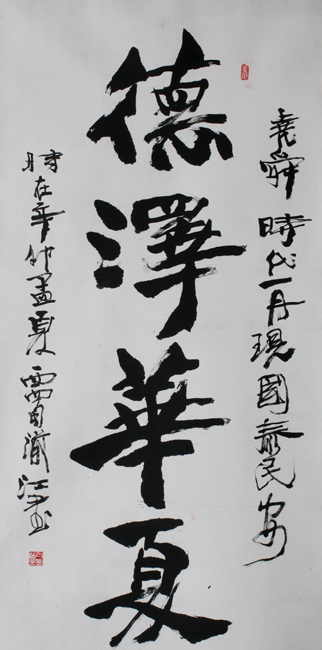 堯舜時代再現國泰民安
德澤華夏
時在辛卯孟夏江書